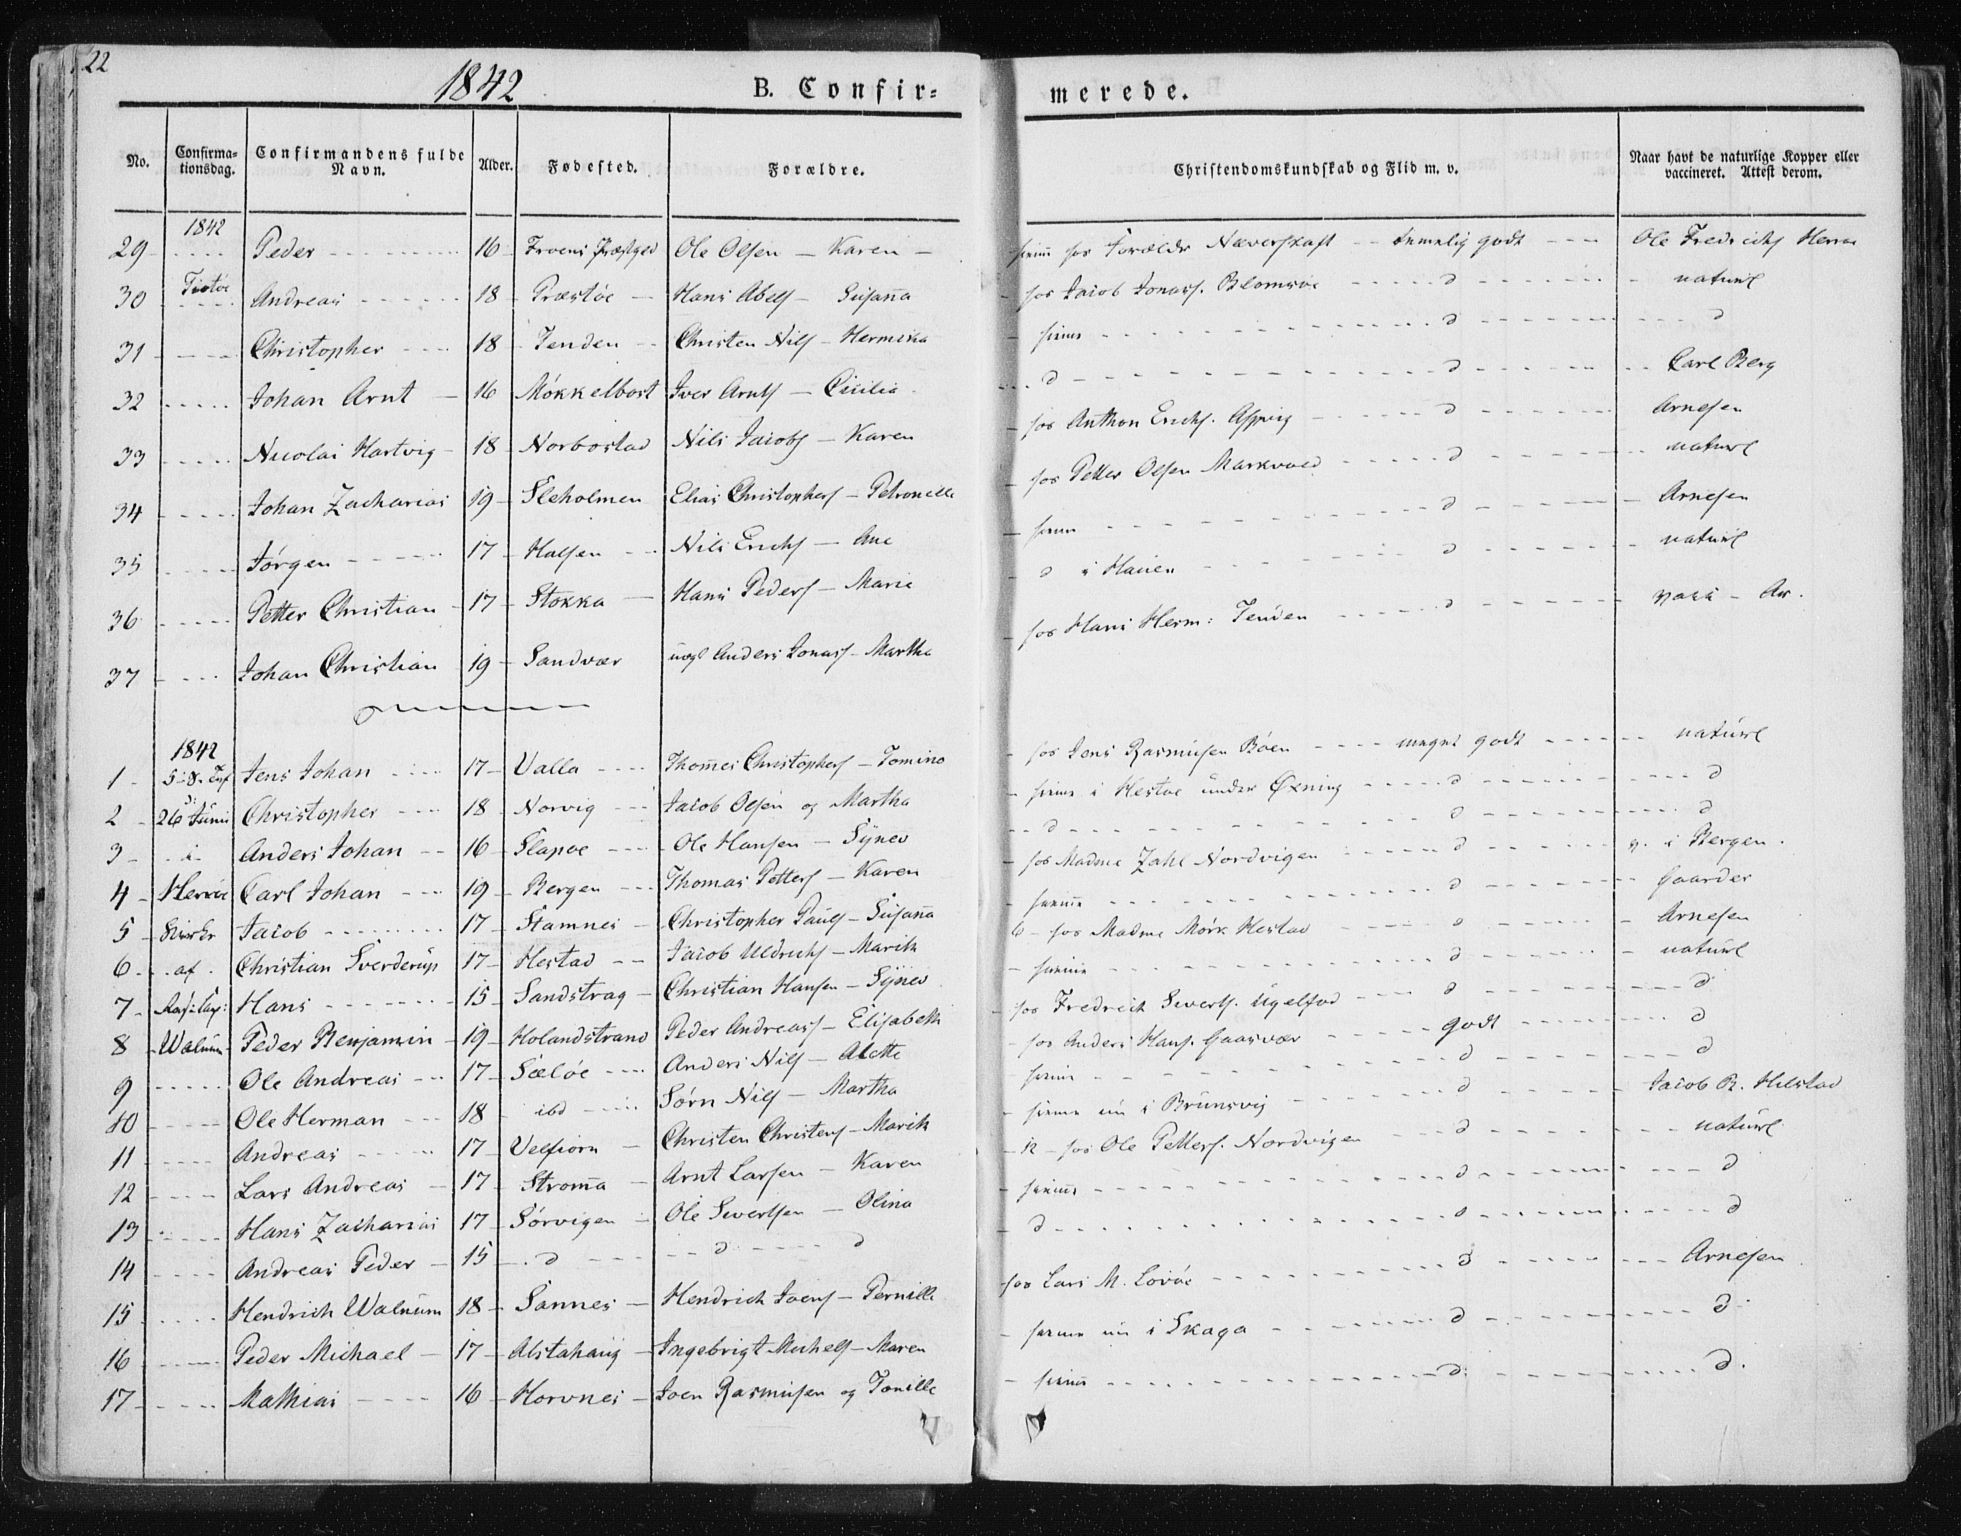 22
1842
B. Confir=
merede.
No.
Confirma-
tionsdag.
Confirmandens fulde
Navn.
Alder.
Fødested.
Forældre.
Christendomskundskab og Flid m. v.
Naar havt de naturlige Kopper eller
vaccineret. Attest derom.
1842
29 Peder 16 Ole Olsen — Karen — temelig godt Ole Fredrichs
30 Andreas 18 Præstøe Hans Abels — Susanna hos Jacob Jonass. Blomsøe d naturl
31 Christopher 18 Tenden Christen Nils — Hermina d d
32 Johan Arnt 16 Møkkelbost Iver Arnts — Cicilia d d Carl Berg
33 Nicolai Hartvig 18 Norbostad Nils Jacobs — Karen hos Anthon Erichs. d Arnesen
34 Johan Zacharias 19 Sleholmen Elias Christophers — Petronelle hos Petter Olsen Markvold d naturl
35 Jørgen 17 Halsen Nils Erichs — Ane d Arnesen
36 Petter Christian 17 Stokka Hans Peders — Marie d i Haven d naturl
37 Johan Christian 19 Sandvær uægt Anders Jonass — Martha hos Hans Herm: Tenden d vacc — Ar.
1842
1 Jens Johan 17 Valla Thomes Christophers — Tomine hos Jens Rasmusen Bøen meget godt naturl
2 26 Juni Christopher 18 Norvig Jacob Olsen og Martha i Hestøe under Øxning d d
3 i Anders Johan 16 Slapøe Ole Hansen — Synev d d d
4 Herøe Carl Johan 19 Bergen Thomas Petters — Karen hos Madme Zahl Nordvigen d v. i Bergen.
5 Kirke Jacob 17 Stamnes Christopher Pauls — Susanna d Gaarder
6 af Christian Sverderup 17 Hestad Jacob Uldrichs — Marith hos Madme Mørk Hestad d Arnesen
7 Hans 15 Sandstrag Christian Hansen — Synev d naturl
8 Walnum Peder Benjamin 19 Holandstrand Peder Andreass — Elisabeth hos Fredrich Siverts. Ugelfod d d
9 Ole Andreas 17 Sæløe Anders Nils — Alette hos Anders Hans. Gaasvær godt d
10 Ole Herman 18 ibd Sørn Nils — Martha d d
11 Andreas 17 Velfiorn Christen Christens — Marith i Brunsvig d Jacob R. Hilstad
12 Lars Andreas 17 Stroma Arnt Larsen — Karen hos Ole Petters. Nordvigen d naturl
13 Hans Zacharias 17 Sørvigen Ole Sivertsen — Olina d d
14 Andreas Peder 15 d d d d d d
15 Hendrich Walnum 18 Sannes Hendrich Joens — Pernille hos Lars M. Lovøe d Arnesen
16 Peder Michael 17 Alstahaug Ingebrigt Michels — Maren i Skaga d d
17 Mathias 16 Horvnes Joen Rasmusen og Tonille d d